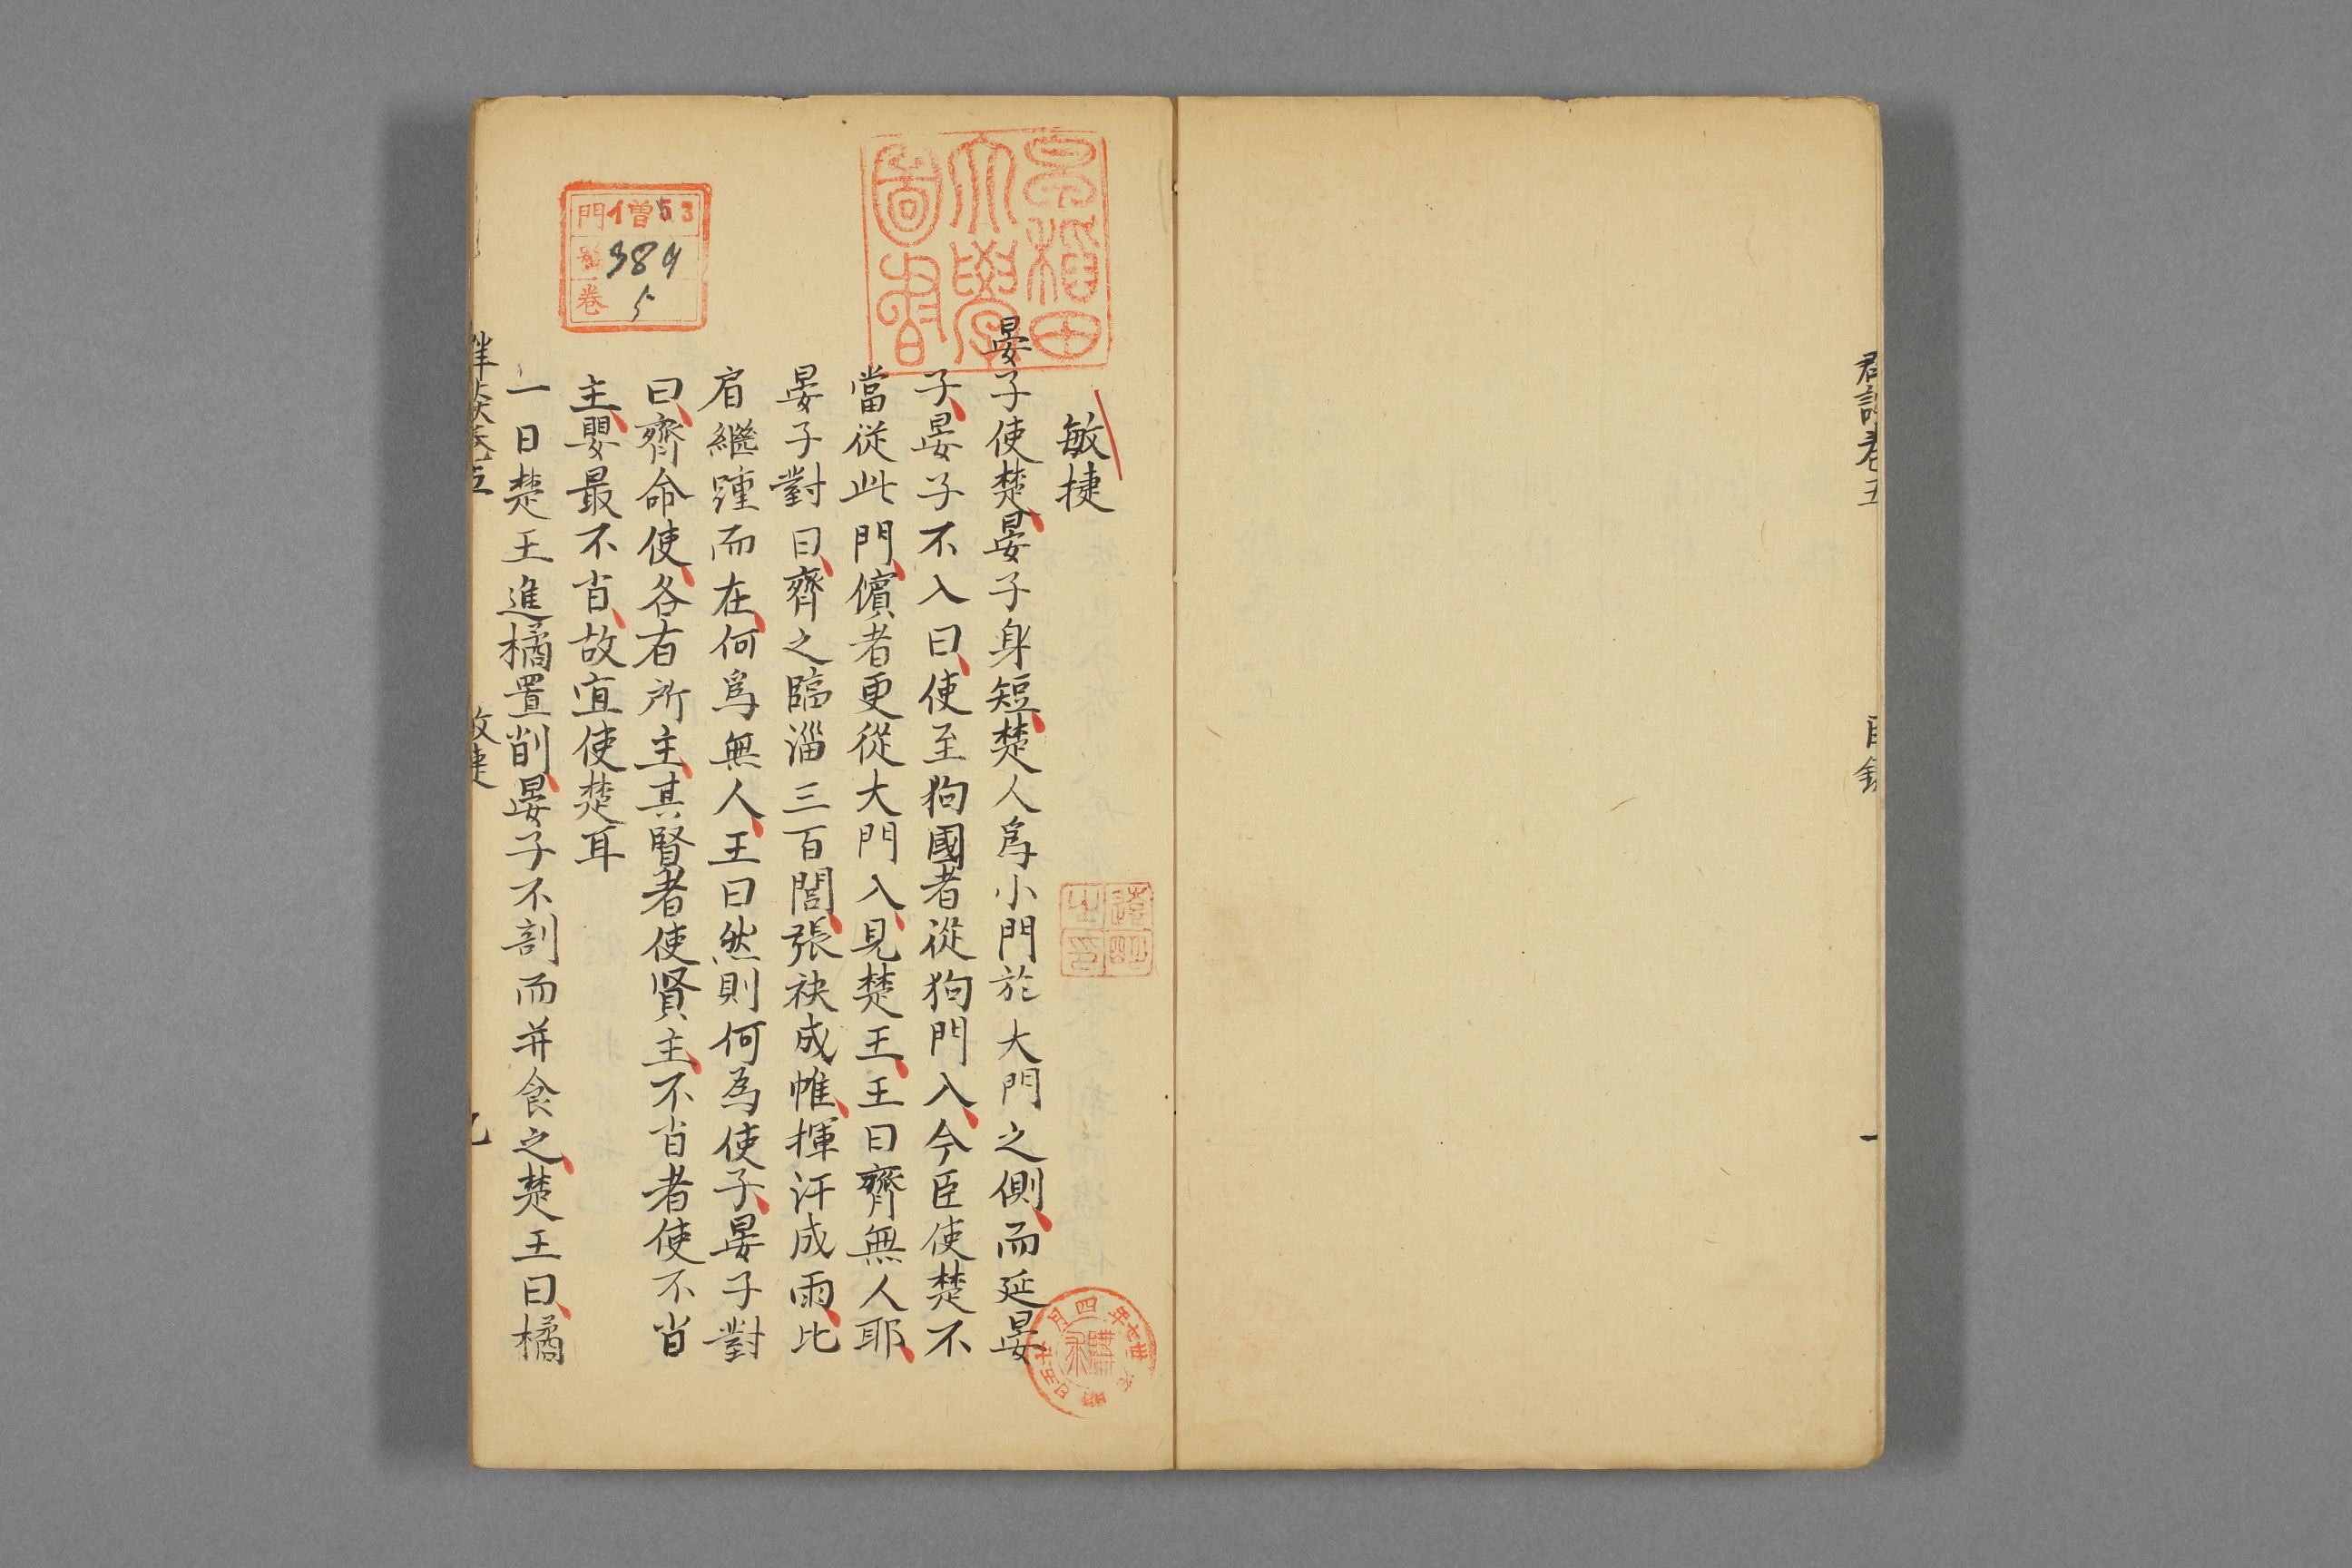 敏捷
晏子使楚晏子身短楚人爲小門於大門之側而延晏
子晏子不入曰使至狗國者從狗門入今臣使楚不
當從此門儐者更從大門入見楚王王曰齊無人耶
晏子對曰齊之臨淄三百閭張袂成帷揮汗成雨比
肩繼踵而在何爲無人王曰然則何為使子晏子對
曰齊命使各有所主其賢者使賢主不肖者使不肖
主嬰最不肖故宜使楚耳
一日楚王進橘置削晏子不剖而并食之楚王曰橘
卷五
目錄
一
早稲田
大學
圖書
門 僧 53
號 384
卷 5
四月
年
購求